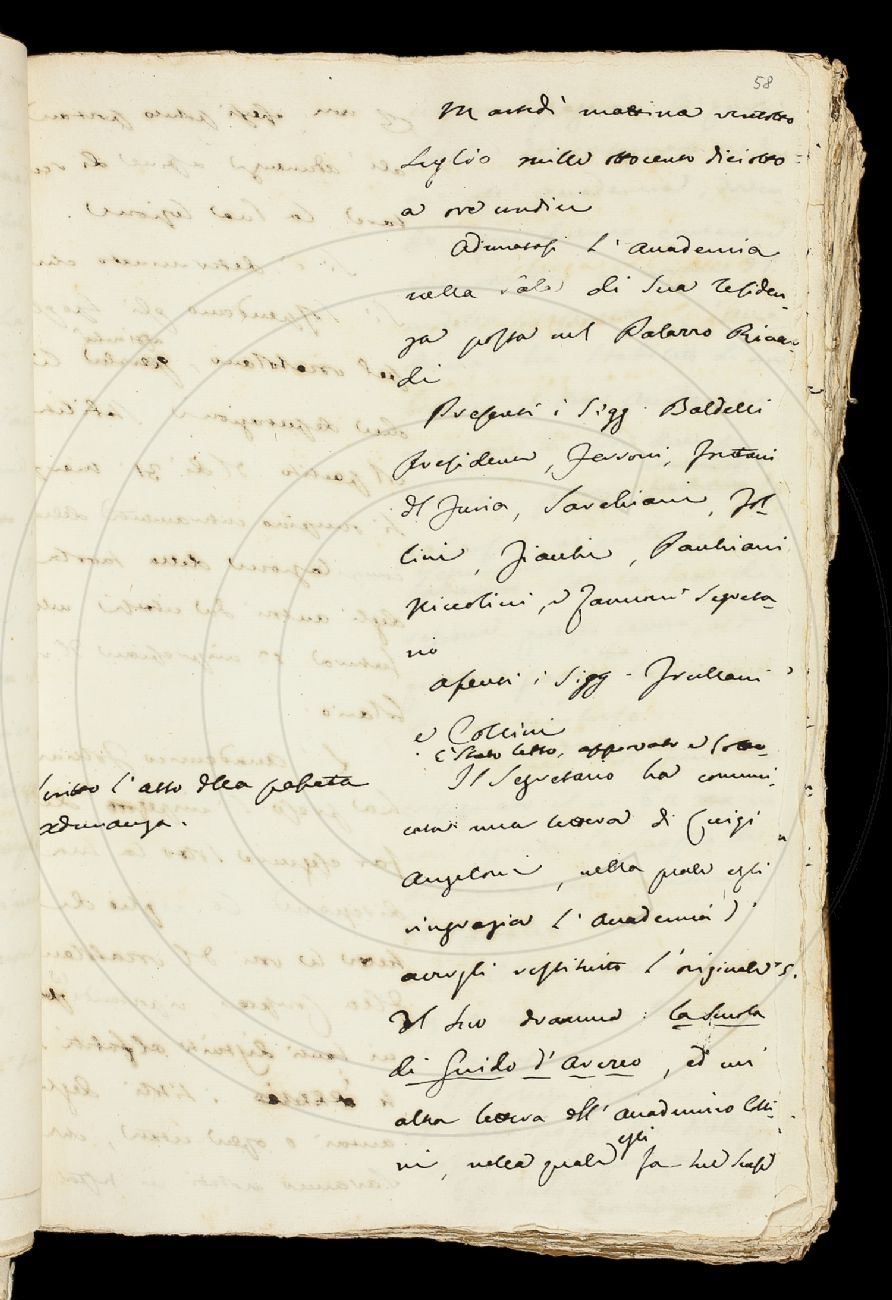 58
Martedì mattina ventotto
Luglio mille ottocento diciotto
a ore undici
Adunatasi l'Accademia
nella sala di sua residen-
za posta nel Palazzo Ricar-
di
Presenti i Sigg. Baldelli
Presidente, Ferroni, Fruttani
del Furia, Sarchiani, Fol-
lini, Fiacchi, Pauchiani
Niccolini, e Zannoni Segreta-
rio
Assenti i Sigg. Frullani
e Collini
È stato letto, approvato e sotto-
scritto l'atto della passata
adunanza.
Il Segretario ha comuni-
cata una lettera di Luigi
Angeloni, nella quale egli
ringrazia l'Accademia d'
avergli restituito l'originale
del suo dramma: la Scuola
di Guido d'Arezzo, ed un'
altra lettera dell'Accademico Colli-
ni, nella quale egli fa sue scuse